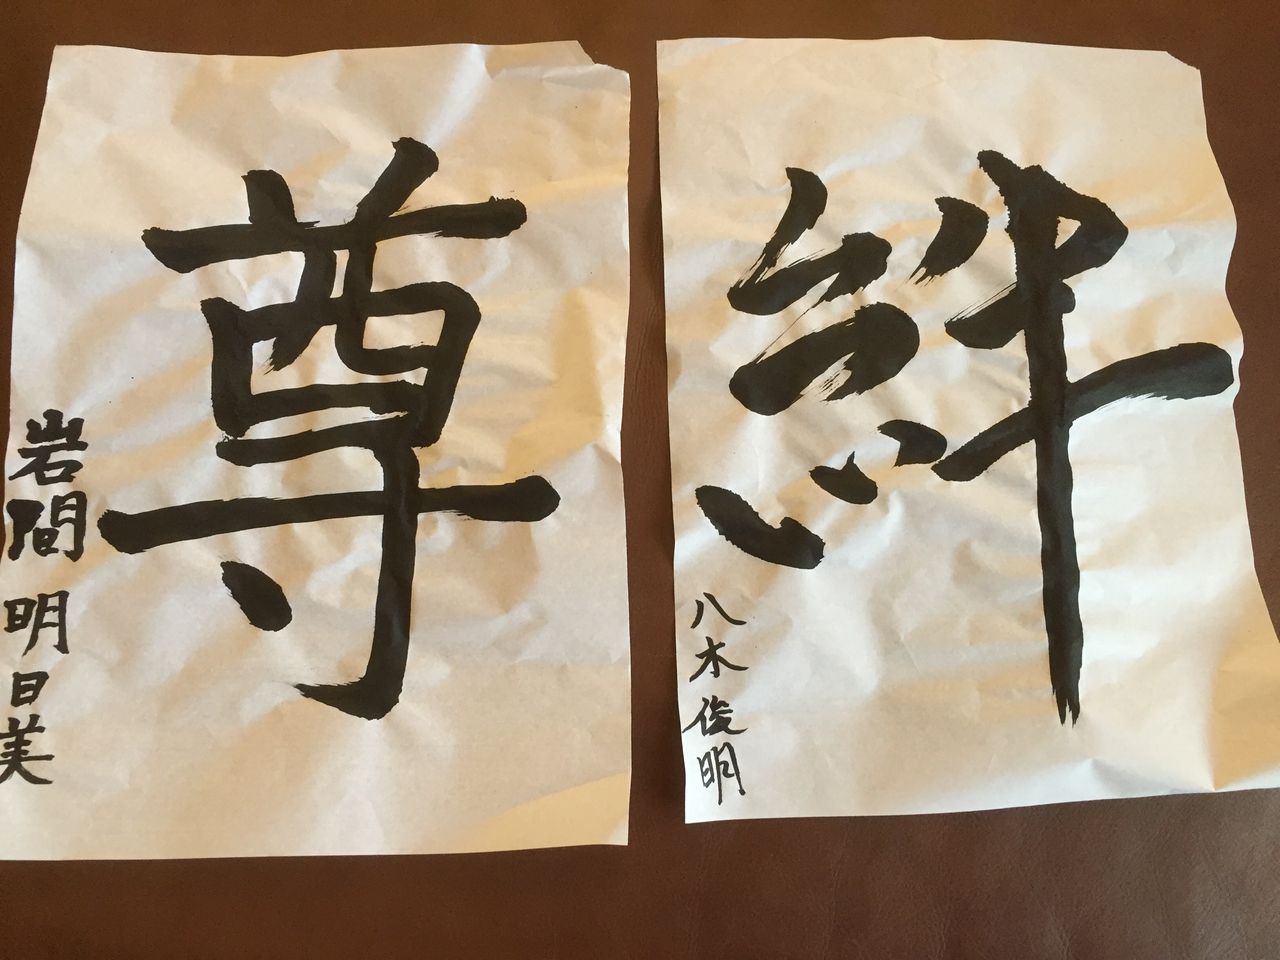 尊
岩間明日美
絆
八木俊明